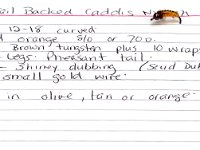 Backed Caddis
12-18 curved
orange 8/0 or 70D.
Brown tungsten plus 10 wraps
Legs: Pheasant tail.
- Shiney dubbing (Scud Dub
small gold wire.
in olive, tan or orange.